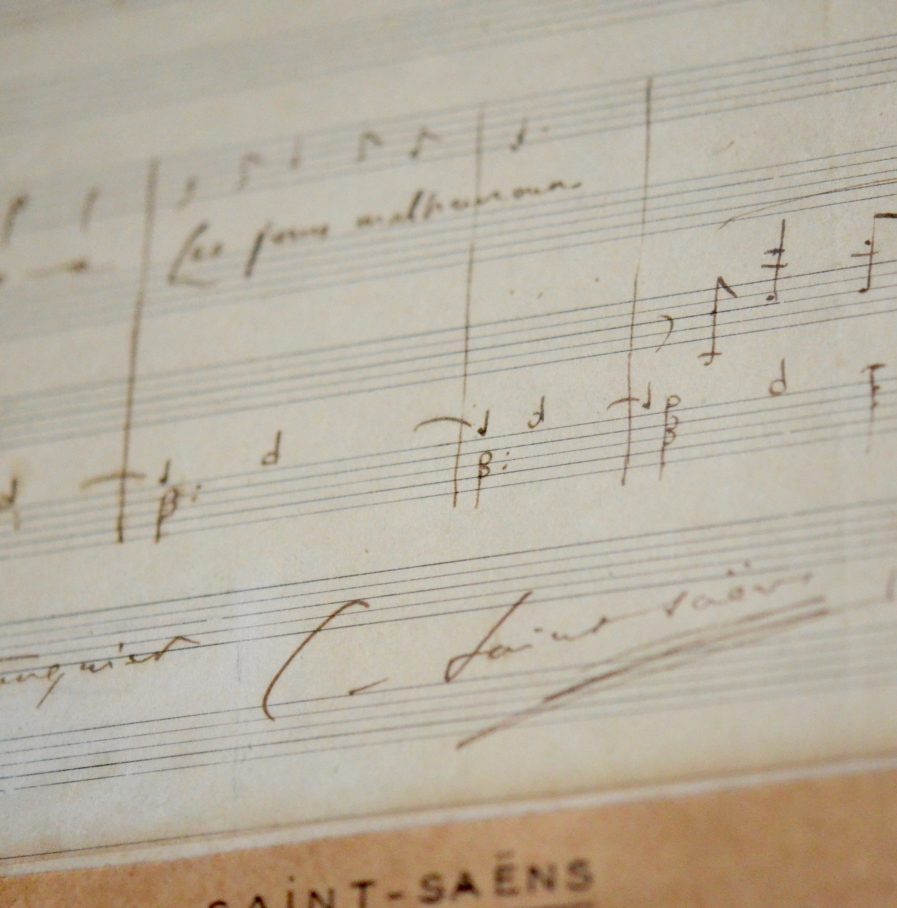 Les jours malheureux
C. Saint-Saëns
SAINT-SAËNS